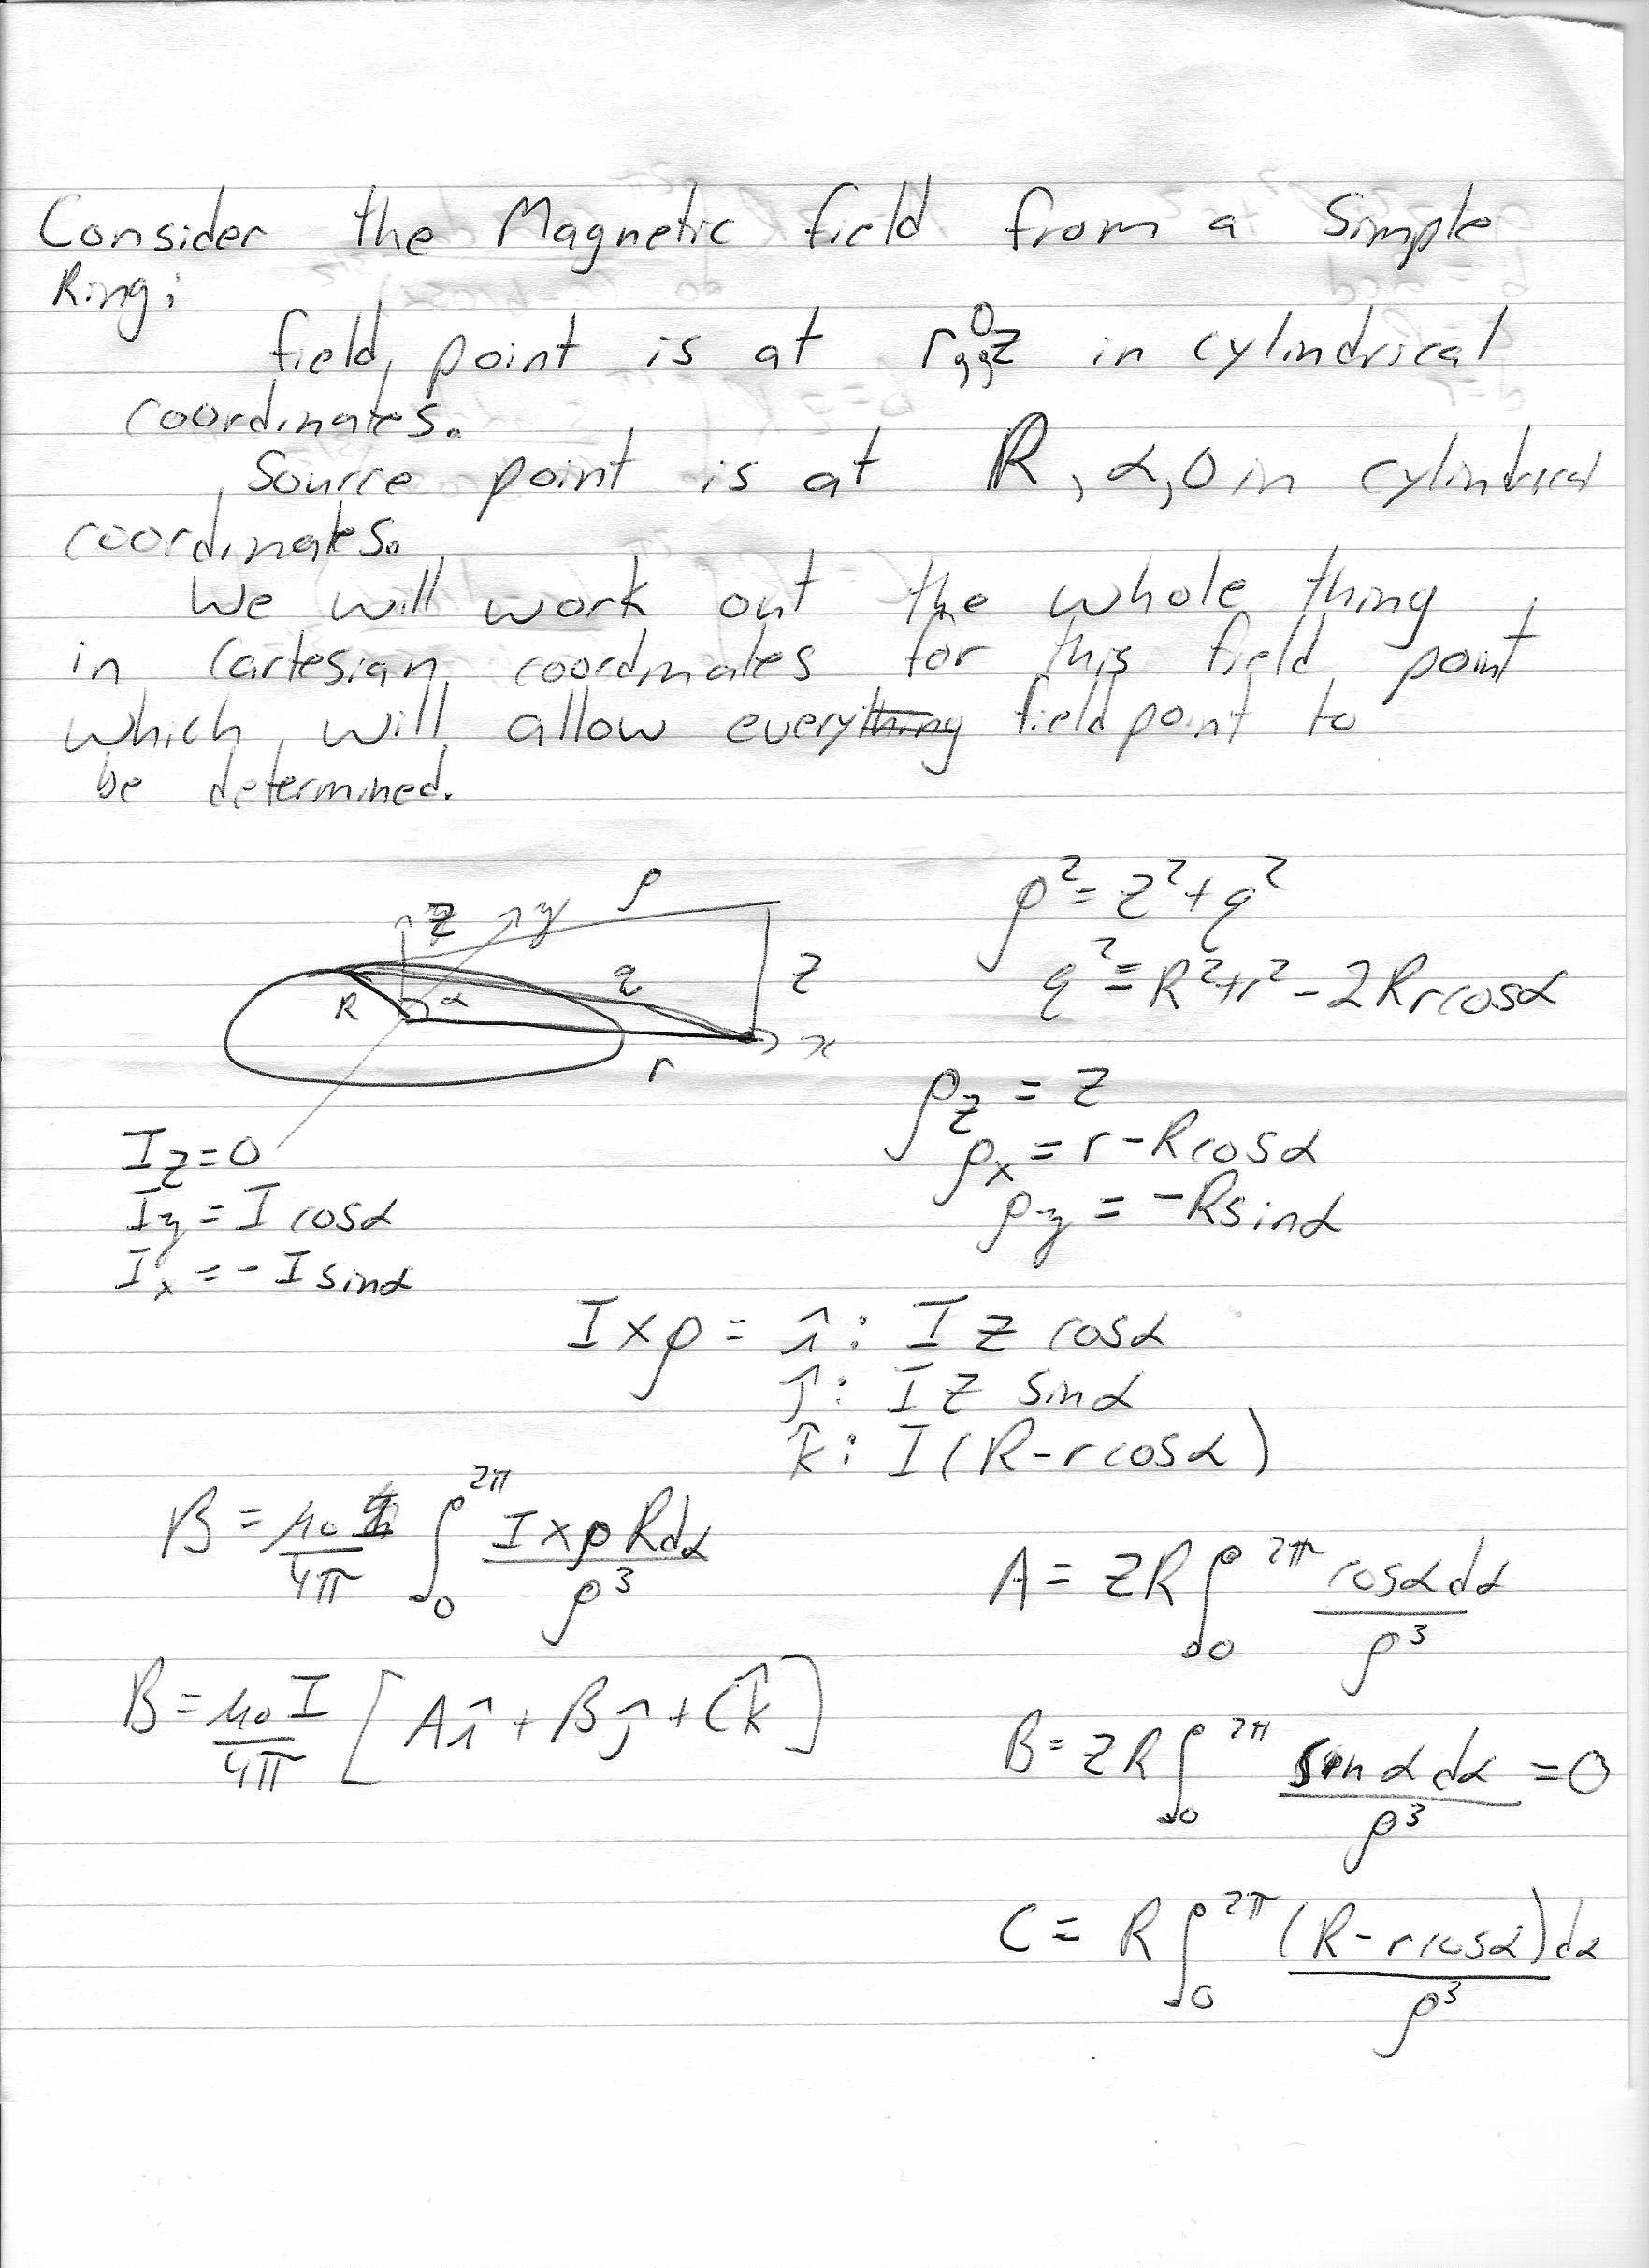 Consider the Magnetic field from a Simple
Ring:
field point is at r,0,z in cylindrical
coordinates.
Source point is at R, α, 0 in cylindrical
coordinates.
We will work out the whole thing
in Cartesian coordinates for this field point
which will allow everything field point to
be determined.
ρ
z y
R α q z
r x
ρ² = z² + q²
q² = R² + r² - 2Rrcosα
ρz = z
ρx = r - Rcosα
ρy = -Rsinα
Iz = 0
Iy = I cosα
Ix = - I sinα
I × ρ = î: I z cosα
ĵ: I z sinα
k̂: I (R - r cosα)
B = μ₀/4π ∫₀^2π I × ρ Rdα / ρ³
B = μ₀I/4π [Aî + Bĵ + Ck̂]
A = zR ∫₀^2π cosα dα / ρ³
B = zR ∫₀^2π sin α dα / ρ³ = 0
C = R ∫₀^2π (R - rcosα) dα / ρ³